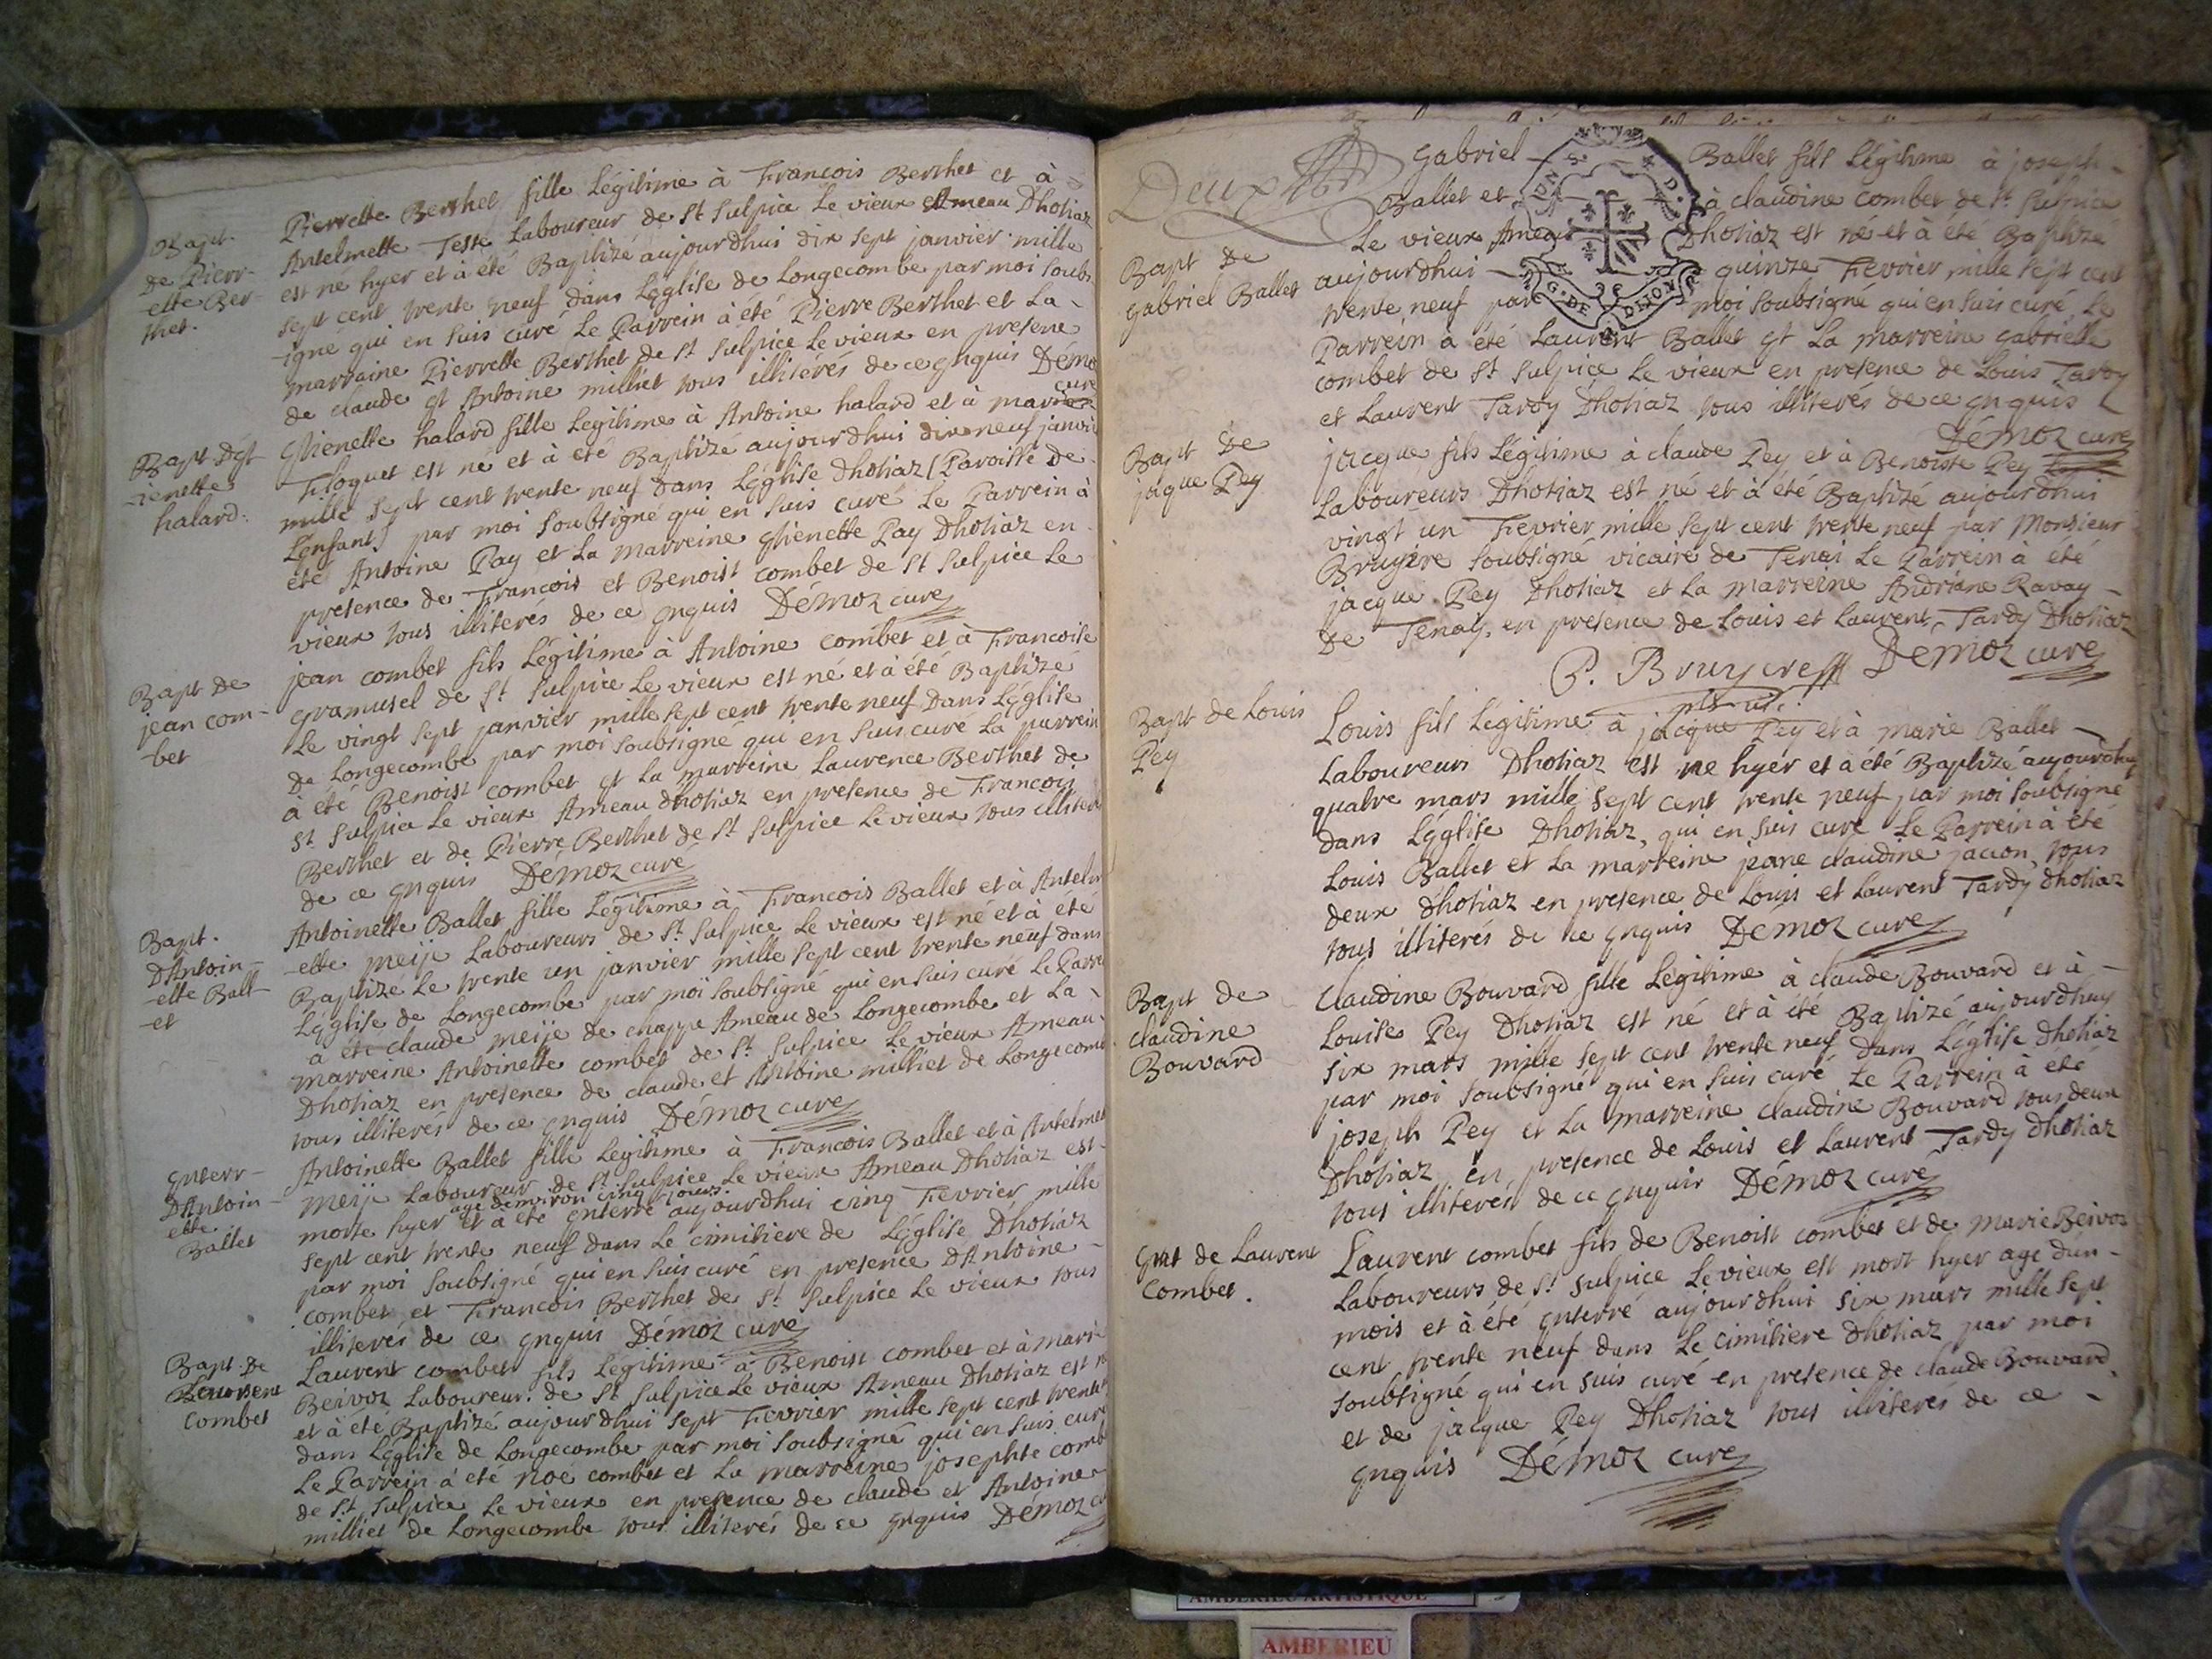 Bapt.
de Pierr-
-ette Ber-
thet.
Pierrette Berthet fille Légitime à Francois Berthet et à
Antelmette Teste Laboureur de St Sulpice Le vieux Ameau Dhotiaz
est né hyer et à été Baptizé aujourdhui dix sept janvier mille
sept cent trente neuf dans Léglise de Longecombe par moi soubs
-igné qui en suis curé Le Parrein à été Pierre Berthet et La -
marraine Pierrette Berthet de St Sulpice Le vieux en presene
de claude et Antoine milliet tous illiterés de ce enquis Démoz
curé
Bapt. Det-
-ienette
halard.
Etienette halard fille Legitime à Antoine halard et à marie
Floquet est né et à été Baptizé aujourdhui dix neuf janvie
mille sept cent trente neuf dans Léglise Dhotiaz (Paroisse de
Lenfant) par moi soubsigné qui en suis curé Le Parrein à
été Antoine Pay et La marreine etienette Pay Dhotiaz en
presence de Francois et Benoist combet de St Sulpice Le
vieux tous illiterés de ce enquis Démoz curé
Bapt de
jean com-
-bet
jean combet fils Légitime à Antoine combet et à Francoise
gramusel de St Sulpice Le vieux est né et à été Baptizé
Le vingt sept janvier mille sept cent trente neuf dans Léglise
de Longecombe par moi soubsigné qui en suis curé La parrein
à été Benoist combet et La marreine Laurence Berthet de
St Sulpice Le vieux Ameau dhotiaz en presence de Francois
Berthet et de Pierre Berthet de St Sulpice Le vieux tous illiteré
de ce enquis Démoz curé
Bapt.
DAntoin-
-ette Ball-
-et
Antoinette Ballet fille Légitime à Francois Ballet et à Antelm
-ette meije Laboureurs de St Sulpice Le vieux est né et à eté
Baptize Le trente un janvier mille sept cent trente neuf dans
Léglise de Longecombe par moi soubsigné qui en suis curé Le Parre
a été claude meije de chappe Ameau de Longecombe et La -
marreine Antoinette combet de St Sulpice Le vieux Ameau
Dhotiaz en presence de claude et Antoine milliet de Longecomb
tous illiterés de ce enquis Démoz curé
enterr-
DAntoin-
ette
Ballet
Antoinette Ballet fille Legitime à Francois Ballet et à Antelmet
meije Laboureur de St Sulpice Le vieux Ameau Dhotiaz est -
age denviron cinq jours
morte hyer et à été enterré aujourdhui cinq Fevrier mille
sept cent trente neuf dans Le cimitiere de Léglise Dhotiaz
par moi soubsigné qui en suis curé en presence DAntoine -
combet et Francois Berthet de St Sulpice Le vieux tous
illiterés de ce enquis Démoz curé
Bapt. de
Laurent
combet
Laurent combet fils Légitime à Benoist combet et à Marie
Beivoz Laboureur de St Sulpice Le vieux Ameau Dhotiaz est né
et à été Baptizé aujourdhui sept Fevrier mille sept cent trente
dans Léglise de Longecombe par moi soubsigné qui en suis curé
Le Parrein à été Noé combet et La marreine josephte comb
de St Sulpice Le vieux en presence de claude et Antoine -
milliet de Longecombe tous illiterés de ce enquis Démoz cu
Deux
Bapt de
gabriel Ballet
gabriel Ballet fils Légitime à joseph -
Ballet et à claudine combet de St Sulpice
Le vieux Ameau Dhotiaz est né et à été Baptizé
aujourdhui quinze Fevrier mille sept cent
trente neuf par moi soubsigné qui en suis curé Le
Parrein à été Laurent Ballet et La marreine gabrielle
combet de St Sulpice Le vieux en presence de Louis Tardy
et Laurent Tardy Dhotiaz tous illiterés de ce enquis
Démoz curé
G. DE DIJON
Bapt de
jaque Pey
jacque fils Légitime à claude Pey et à Benoiste Pey
Laboureurs Dhotiaz est né et à été Baptizé aujourdhui
vingt un Fevrier mille sept cent trente neuf par Monsieur
Bruyere soubsigné vicaire de Tenai Le Parrein à été
jacque Pey Dhotiaz et La marreine Andriane Ravay -
de Tenay, en presence de Louis et Laurent Tardy Dhotiaz
P. Bruyere Démoz curé
Bapt de Louis
Pey
Louis fils Légitime à jacque Pey et à marie Ballet -
Laboureurs Dhotiaz est né hyer et à été Baptizé aujourdhuy
quatre mars mille sept cent trente neuf par moi soubsigné
dans Léglise Dhotiaz, qui en suis curé Le Parrein à été
Louis Ballet et La marreine jeane claudine jacion tous
deux dhotiaz en presence de Louis et Laurent Tardy dhotiaz
tous illiterés de ce enquis Démoz curé
Bapt de
claudine
Bouvard
claudine Bouvard fille Légitime à claude Bouvard et à -
Louise Pey Dhotiaz est né et à été Baptizé aujourdhuy
six mars mille sept cent trente neuf dans Léglise dhotiaz
par moi soubsigné qui en suis curé Le Parrein à eté
joseph Pey et La marreine claudine Bouvard tous deux
Dhotiaz en presence de Louis et Laurent Tardy dhotiaz
tous illiterés de ce enquis Démoz curé
ent de Laurent
Combet.
Laurent combet fils de Benoist combet et de Marie Beivoz
Laboureurs de St Sulpice Le vieux est mort hyer age dun -
mois et à été enterré aujourdhui six mars mille sept
cent trente neuf dans Le cimitiere dhotiaz par moi
soubsigné qui en suis curé en presence de claude Bouvard
et de jacque Pey Dhotiaz tous illiterés de ce -
enquis Démoz curé
AMBERIEU ARTISTIQUE
AMBERIEU